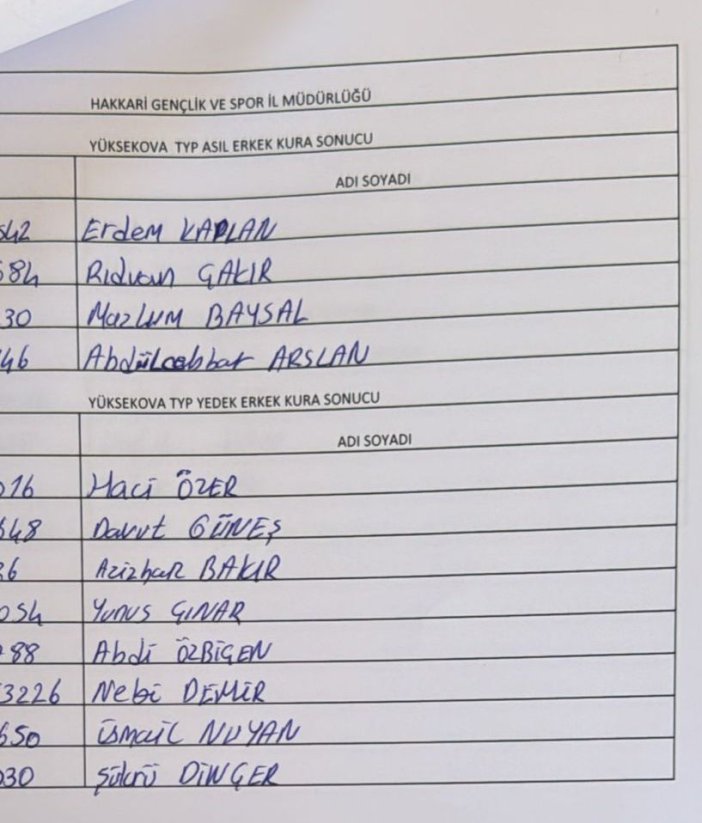 HAKKARİ GENÇLİK VE SPOR İL MÜDÜRLÜĞÜ
YÜKSEKOVA TYP ASIL ERKEK KURA SONUCU
ADI SOYADI
542 Erdem KAPLAN
584 Rıdvan ÇAKIR
30 Mazlum BAYSAL
46 Abdülcebbar ARSLAN
YÜKSEKOVA TYP YEDEK ERKEK KURA SONUCU
ADI SOYADI
016 Haci ÖZER
648 Davut GÜNEŞ
36 Azizhan BAKIR
054 Yunus ÇINAR
88 Abdi ÖZBİÇEN
3226 Nebi DEMİR
650 İsmail NUYAN
030 Şükrü DİNÇER